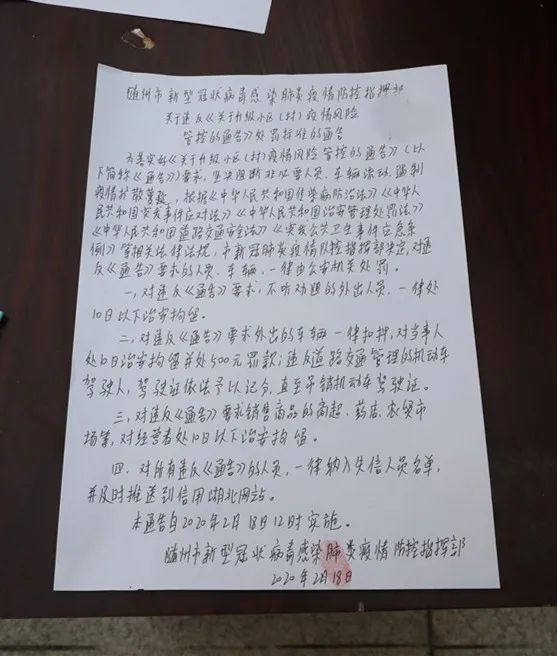 随州市新型冠状病毒感染肺炎疫情防控指挥部
关于违反《关于升级小区(村)疫情风险
管控的通告》处罚标准的通告
为落实好《关于升级小区(村)疫情风险管控的通告》(以
下简称《通告》)要求,坚决阻断非必要人员、车辆流动,遏制
疫情扩散蔓延,根据《中华人民共和国传染病防治法》《中华人
民共和国突发事件应对法》《中华人民共和国治安管理处罚法》
《中华人民共和国道路交通安全法》《突发公共卫生事件应急条
例》等相关法律法规,市新冠肺炎疫情防控指挥部决定,对违
反《通告》要求的人员、车辆,一律由公安机关处罚。
一、对违反《通告》要求,不听劝阻的外出人员,一律处
10日以下治安拘留。
二、对违反《通告》要求外出的车辆一律扣押,对当事人
处10日治安拘留并处500元罚款;违反道路交通管理的机动车
驾驶人,驾驶证依法予以记分,直至吊销机动车驾驶证。
三、对违反《通告》要求销售商品的商超、药店、农贸市
场等,对经营者处10日以下治安拘留。
四、对所有违反《通告》的人员,一律纳入失信人员名单,
并及时推送到信用湖北网站。
本通告自2020年2月18日12时实施。
随州市新型冠状病毒感染肺炎疫情防控指挥部
2020年2月18日